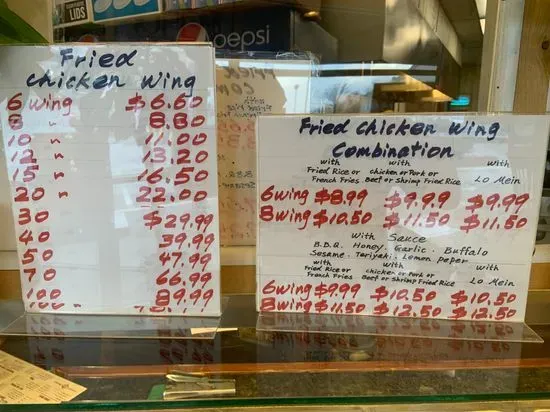 LIDS
pepsi
Fried
chicken wing
6 wing $6.60
8 " 8.80
10 " 11.00
12 " 13.20
15 " 16.50
20 " 22.00
30 $29.99
40 39.99
50 47.99
70 66.99
100 89.99
Fried chicken wing
Combination
with with with
Fried Rice or chicken or Pork or
French Fries Beef or Shrimp Fried Rice Lo Mein
6wing $8.99 $9.99 $9.99
8wing $10.50 $11.50 $11.50
with Sauce
B.B.Q. Honey. Garlic. Buffalo
Sesame. Tariyaki. Lemon Peper
with with with
Fried Rice or chicken or Pork or
French Fries Beef or Shrimp Fried Rice Lo Mein
6wing $9.99 $10.50 $10.50
8wing $11.50 $12.50 $12.50